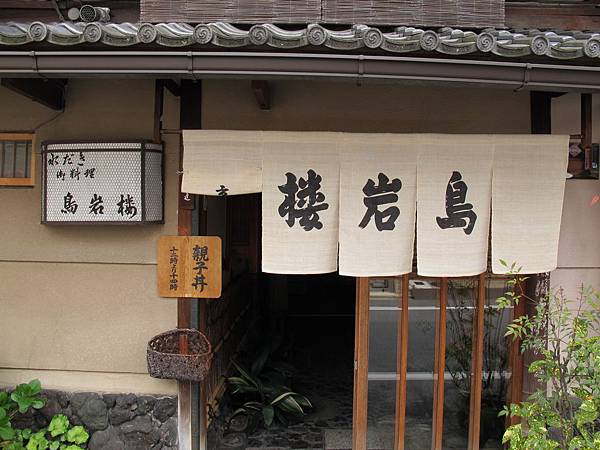 水だき
御料理
鳥岩楼
鳥岩楼
親子丼
十二時より十四時